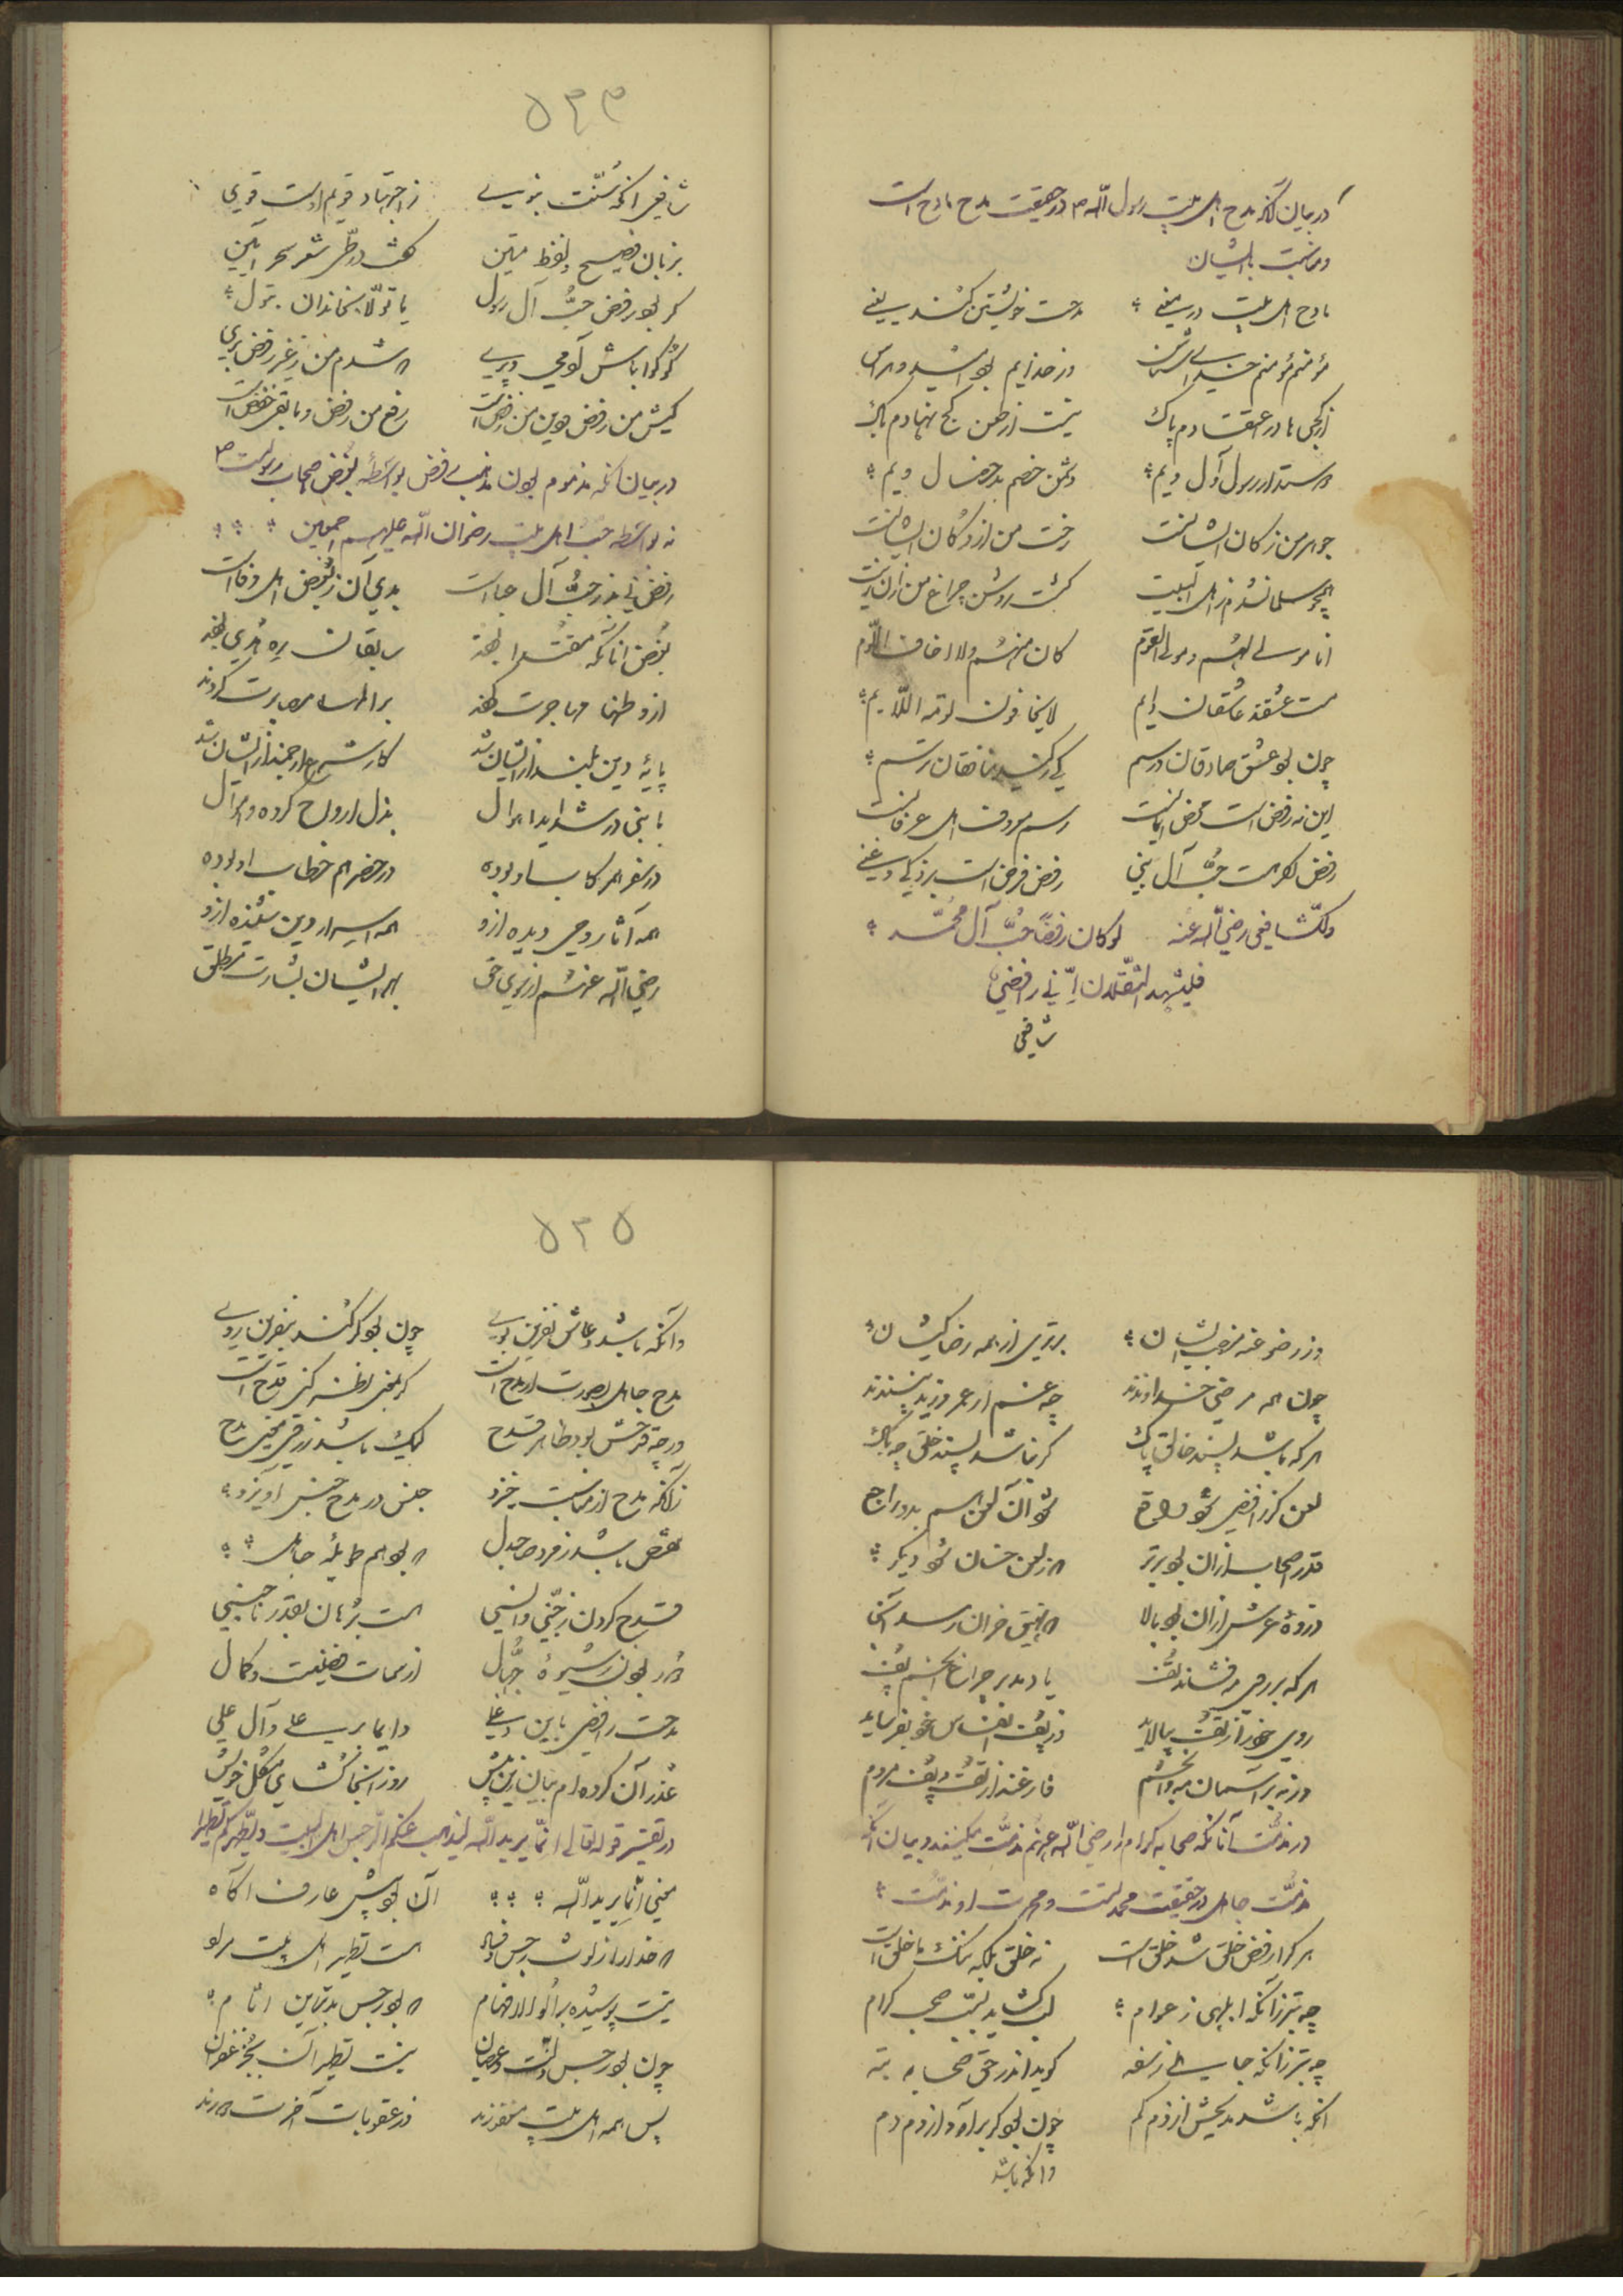 در بیان آنکه مدح اهل بیت رسول الله ص در حقیقت مدح مادح است
و مناسبت بایشان
مادح اهل بیت در معنی مدحت خویشتن کند یعنی
مؤمنم موقنم خدای شناس وز خدایم بود امید و هراس
از کجی ها در اعتقادم پاک نیست از طعن کج نهادم باک
دوستدار رسول و آل ویم دشمن خصم بدخصال ویم
جوهر من ز کان ایشانست رخت من از دکان ایشانست
همچو سلمان شدم ز اهل البیت گشت روشن چراغ من زان زیت
انا مولی لهم و مولی القوم کان منهم ولا اخاف اللوم
مست عشقند عاشقان دایم لا یخافون لومة اللایم
چون بود عشق صادقان درسم کی ز کید منافقان ترسم
این نه رفض است محض ایمانست رسم معروف اهل عرفانست
رفض اگر هست حب آل نبی رفض فرض است بر ذکی و غبی
وللشافعی رضی الله عنه لو کان رفضا حب آل محمد
فلیشهد الثقلان انی رافضی
شافعی
۵۳۳
شافعی آنکه سنت نبوی ز اجتهاد قویم اوست قوی
بزبان فصیح و لفظ متین گفت در طی شعر سحر آیین
گر بود رفض حب آل رسول یا تولا بخاندان بتول
گو گوا باش آدمی و پری که شدم من ز غیر رفض بری
کیش من رفض و دین من رفض است رفع من رفض و مابقی خفض است
در بیان آنکه مذموم بودن مذهب رفض بواسطه بغض صحابه رسولست ص
نه بواسطه حب اهل بیت رضوان الله علیهم اجمعین
رفض نی بد ز حب آل عباست بدی آن ز بغض اهل وفاست
بغض آنانکه مقتدا بودند سابقان ره هدی بودند
از وطنها مهاجرت کردند بر الم مصابرت کردند
پایه دین بلند ازیشان شد کار شرع ارجمند ازیشان شد
با نبی در شداید اهوال بذل ارواح کرده و اموال
در سفر هم رکاب او بوده در حضر هم خطاب او بوده
همه آثار وحی دیده ازو همه اسرار دین شنیده ازو
رضی الله عنهم از سوی حق بهر ایشان بشارت مطلق
وز رضوا عنه منصب ایشان برتری از همه رضا کیشان
چون همه مرضی خداوندند چه غم ار عمرو زید نپسندند
هر که باشد پسند خالق پاک گر نباشد پسند خلق چه باک
لعن کز رافضی شود واقع شود آن لعن هم بدو راجع
قدر اصحاب ازان بود برتر که ز لعن خسان شود دیگر
ذروه عرش ازان بود بالا که نهیق خران رسد آنجا
هر که بر روی مه فشاند تف یا دمد بر چراغ انجم پف
روی خود از تف بیالاید وز پف انفاس خود بفرساید
ور نه بر آسمان مه و انجم فارغند از تف و پف مردم
در مذمت آنانکه صحابه کرام را رضی الله عنهم مذمت میکنند و بیان آنکه
مذمت جاهل در حقیقت محمدتست و محمدت او مذمت
هر که را رفض خلق شد خلق است نه خلق بلکه ننگ ما خلق است
چه بتر زانکه ابلهی ز عوام لب گشاید بسب صحب کرام
چه بتر زانکه جاهلی ز سفه گوید اندر حق صحابه تبه
آنکه باشد مدیحش از ذم کم چون بود گر برآورد از ذم دم
وانکه باشد
۵۳۵
وانکه باشد دعاش نفرین بوی چون بود گر کند بنفرین روی
مدح جاهل بصورت ار مدح است گر بمعنی نظر کنی قدح است
ورچه قدحش بود بظاهر قدح لیک باشد ز روی معنی مدح
زانکه مدح از مناسبت خیزد جنس در مدح جنس آویزد
نقص باشد ز مرد صاحب دل که بود هم طویله جاهل
قدح کردن ز جنی و انسی هست برهان بقدر ناجنسی
دور بودن ز شیوه جهال از سمات فضیلت و کمال
مدحت رافضی باین دغلی دایما بر علی و آل علی
عذر آن کرده ام بیان زین پیش رو از انجا گشای مشکل خویش
در تفسیر قوله تعالی انما یرید الله لیذهب عنکم الرجس اهل البیت ویطهرکم تطهیرا
معنی انما یرید الله آن بود پیش عارف آگاه
که خدا را ز لوث رجس و فساد هست تطهیر اهل بیت مراد
نیست پوشیده بر اولو الافهام که بود رجس بدترین آثام
چون بود رجس ذنب و عصیان نیست تطهیر آن بجز غفران
پس همه اهل بیت مغفورند وز عقوبات آخرت دورند